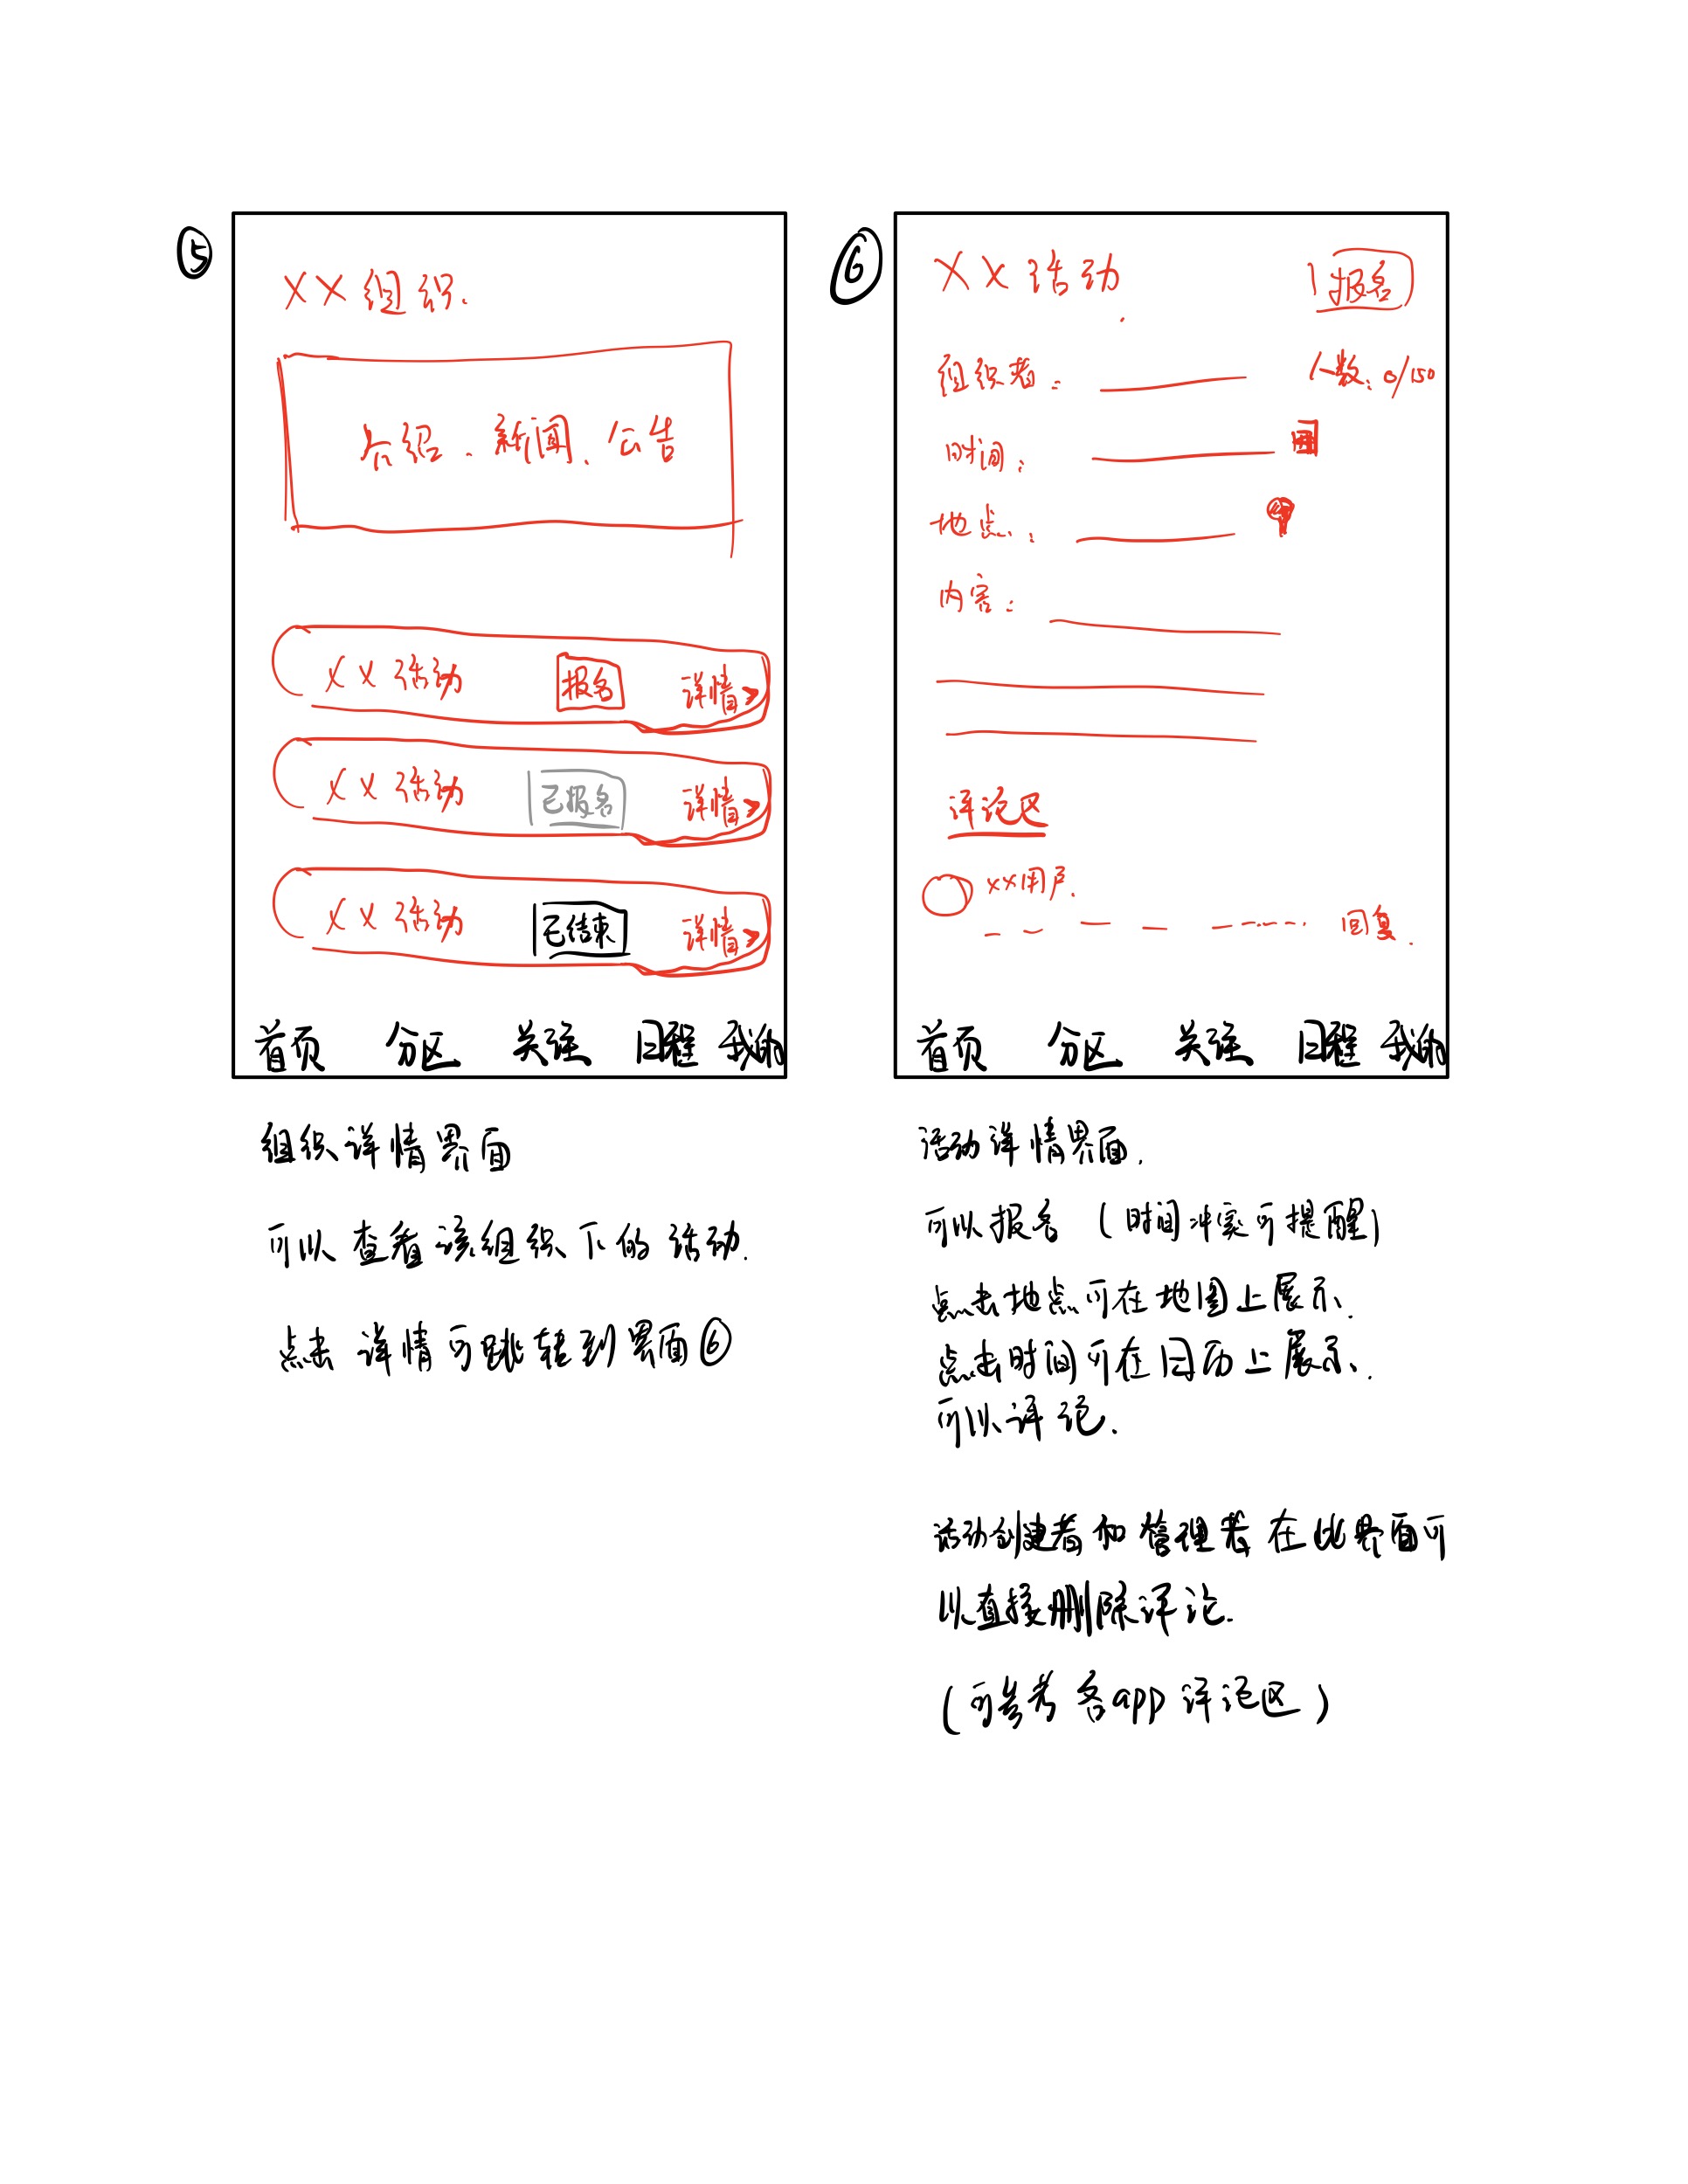 ⑤
XX组织.
介绍、新闻、公告
XX活动 报名 详情>
XX活动 已报名 详情>
XX活动 已结束 详情>
首页 分区 关注 日程 我的
组织详情界面
可以查看该组织下的活动.
点击详情可跳转到界面⑥
⑥
XX活动 报名
组织者: 人数: 0/150
时间:
地点:
内容:
评论区
XX用户.
回复.
首页 分区 关注 日程 我的
活动详情界面.
可以报名 (时间冲突可提醒)
点击地点可在地图上展示.
点击时间可在日历上展示.
可以评论.
活动创建者和管理者在此界面可
以直接删除评论.
(可参考各app评论区)